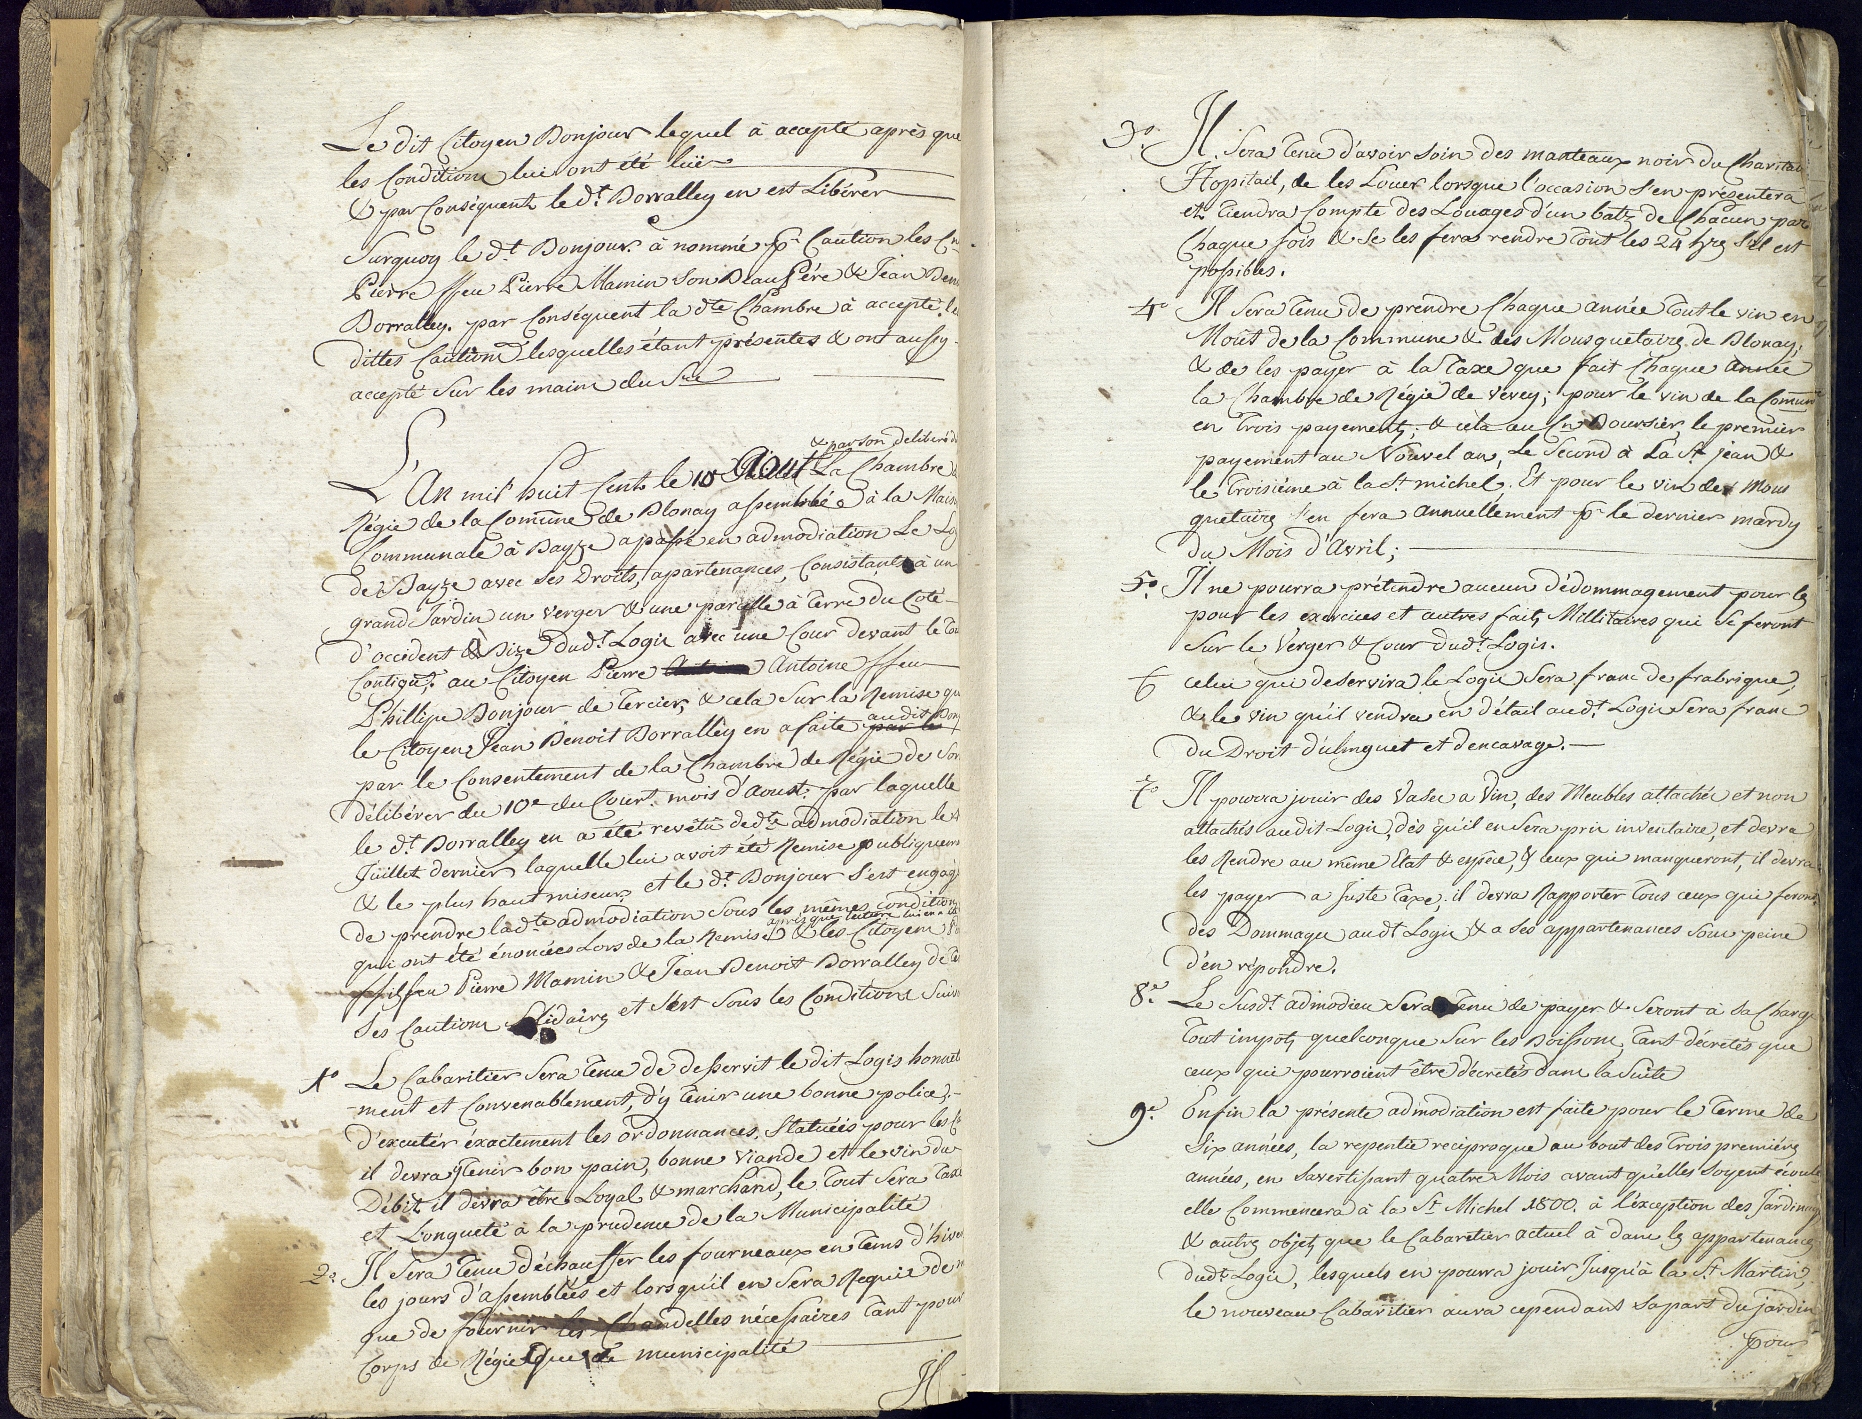 Le dit Citoyen Bonjour lequel à accepté après que
les Conditions lui ont été luës
& par Conséquent le dt. Borralley en est Libérer
Surquoy le dt. Bonjour à nommé pr. Caution les Cn.
Pierre ffeu Pierre Mamin son Beau Pére & Jean Ben
Borralley. par Conséquent la dte Chambre à accepté les
dittes Cautions lesquelles étant présentes & ont aussy
accepté Sur les mains du Sre
& par son deliberé d
L'An mil huit Cents le 10 Aout La Chambre d
Régie de la Comune de Blonay assemblée à la Mais
Communale à Bayze a passé en admodiation Le Log
de Bayze avec ses Droits, apartenances, Consistants à un
grand Jardin un verger & une parcelle à terre du Coté
d'occident & Bize dudt. Logis avec une Cour devant le tou
Contigus. au Citoyen Pierre Antoine ffeu
Phillipe Bonjour de Tercier, & cela Sur la Remise qu
le Citoyen Jean Benoit Borralley en a faite par le audit Bonj
par le Consentement de la Chambre de Régie de Son
délibérer du 10e du Court. mois d'Aoust. par laquelle
le dt. Borralley en a été revétû dedte admodiation le 4
Juillet dernier laquelle lui avoit été Remise publiquem
& le plus haut miseur, et le dt. Bonjour S'est engagé
de prendre ladte admodiation Sous les mêmes condition
après que lecture lui en a été
qui ont été énoncées Lors de la Remise & les Citoyens P
ffilsfeu Pierre Mamin & Jean Benoit Borralley de
Ses Cautions Solidaires et S'est Sous les Conditions Suiv
1o Le Cabaritier Sera tenu de desservir le dit Logis honnet
ment et Convenablement, d'y tenir une bonne police,
d'executér éxactement les ordonnances. Statuéés pour les C
il devra tenir bon pain, bonne viande et le vin du
Débit il devra être Loyal & marchand, le tout Sera taxé
et Longueté à la prudence de la Municipalité
2o Il Sera tenu d'échauffer les fourneaux en tems d'hiver
les jours d'assemblées et lorsqu'il en Sera Requis de m
que de fournir les Chandelles nécessaires tant pour
Corps de Régie que de municipalité
Il
3o. Il Sera tenu d'avoir soin des manteaux noir du Charitab
Hopitail, de les Louer lorsque l'occasion S'en présentera
et tiendra Compte des Louages d'un batz de Chacun par
Chaque fois & Se les fera rendre tout les 24 hres S'il est
possibles.
4o Il Sera tenu de prendre Chaque année tout le vin en
Moût de la Commune & des Mousquetaires de Blonay,
& de les payer à la Taxe que fait Chaque année
la Chambre de Régie de Vevey; pour le vin de la Comune
en trois payements; & cela au Cn. Boursier, le premier
payement au Nouvel an, Le Second à La St. jean &
le troisiéme à la St. michel. Et pour le vin des Mous
quetaires S'en fera annuellement pr. le dernier mardy
du Mois d'Avril;
5o. Il ne pourra prétendre aucun dédommagement pour les
pour les exercices et autres faits Millitaires qui Se feront
Sur le Verger & Cour dudt. Logis.
6 celui qui deservira le Logis Sera franc de frabrique,
& le vin qu'il vendra en d'étail audt. Logis Sera franc
du Droit d'ulmguet et d'encavage.
7o Il pourra jouir des Vases a Vin, des Meubles attachés et non
attachés audit Logis, dès qu'il en Sera pris inventaire, et devra
les Rendre au même Etat & espèce, & ceux qui manqueront, il devra
les payer a Juste Taxe, il devra Rapporter tous ceux qui feront
des Dommages audt Logis & a Ses appartenances Sous peine
d'en répondre.
8e. Le Susdt. admodieu Sera tenu de payer & Seront à Sa Charge
tout impots quelconque Sur les Boissons, tant décretés que
ceux qui pourroient être décretés dans la Suite
9e. Enfin la présente admodiation est faite pour le terme de
Six années, la repentie reciproque au bout des trois premiéres
années, en S'avertissant quatre Mois avant qu'elles Soyent écoulé
elle Commencera à la St. Michel 1800. à l'éxception des Jardinage
& autres objets que le Cabaretier actuel à dans les appartenances
dudt. Logis, lesquels en pourra jouir Jusqu'à la St. Martin,
le nouveau Cabaritier aura cependant Sa part du jardin
pour